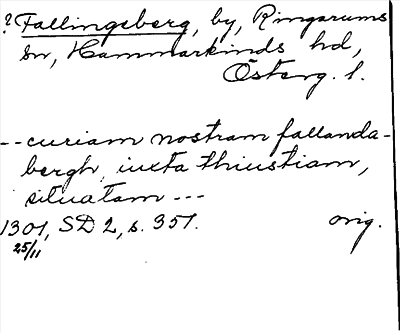 ? Fallingeberg, by, Ringarums
sn, Hammarkinds hd,
Österg. l.
-- curiam nostram fallanda-
bergh, iuxta thiustiam,
situatam ---
1301, SD 2, s. 357. orig.
25/11